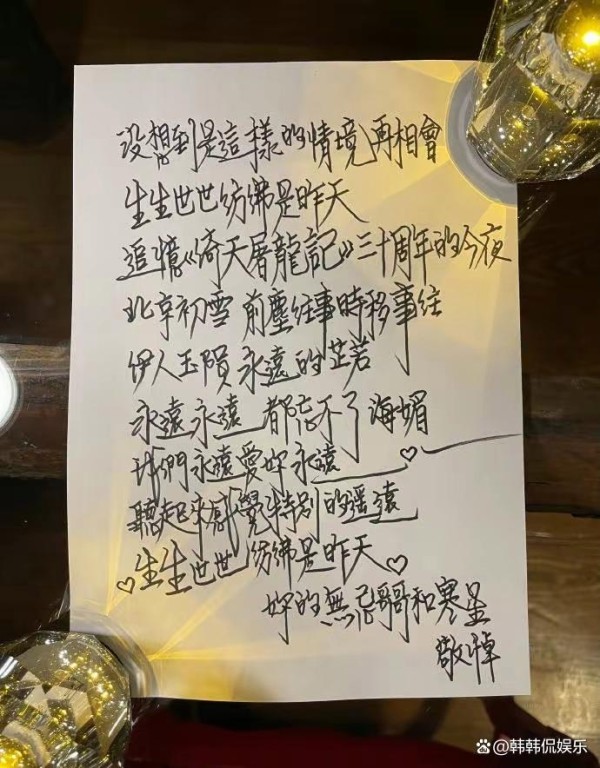 没想到是這樣的情境再相會
生生世世彷彿是昨天
追憶《倚天屠龍記》三十周年的今夜
北京初雪 前塵往事時移事往
伊人玉隕 永遠的芷若
永遠永遠 都忘不了海媚
我們永遠愛妳永遠
聽起來感覺特別的遥遠
生生世世彷彿是昨天
妳的無忌哥哥和寒星
敬悼
韩韩侃娱乐